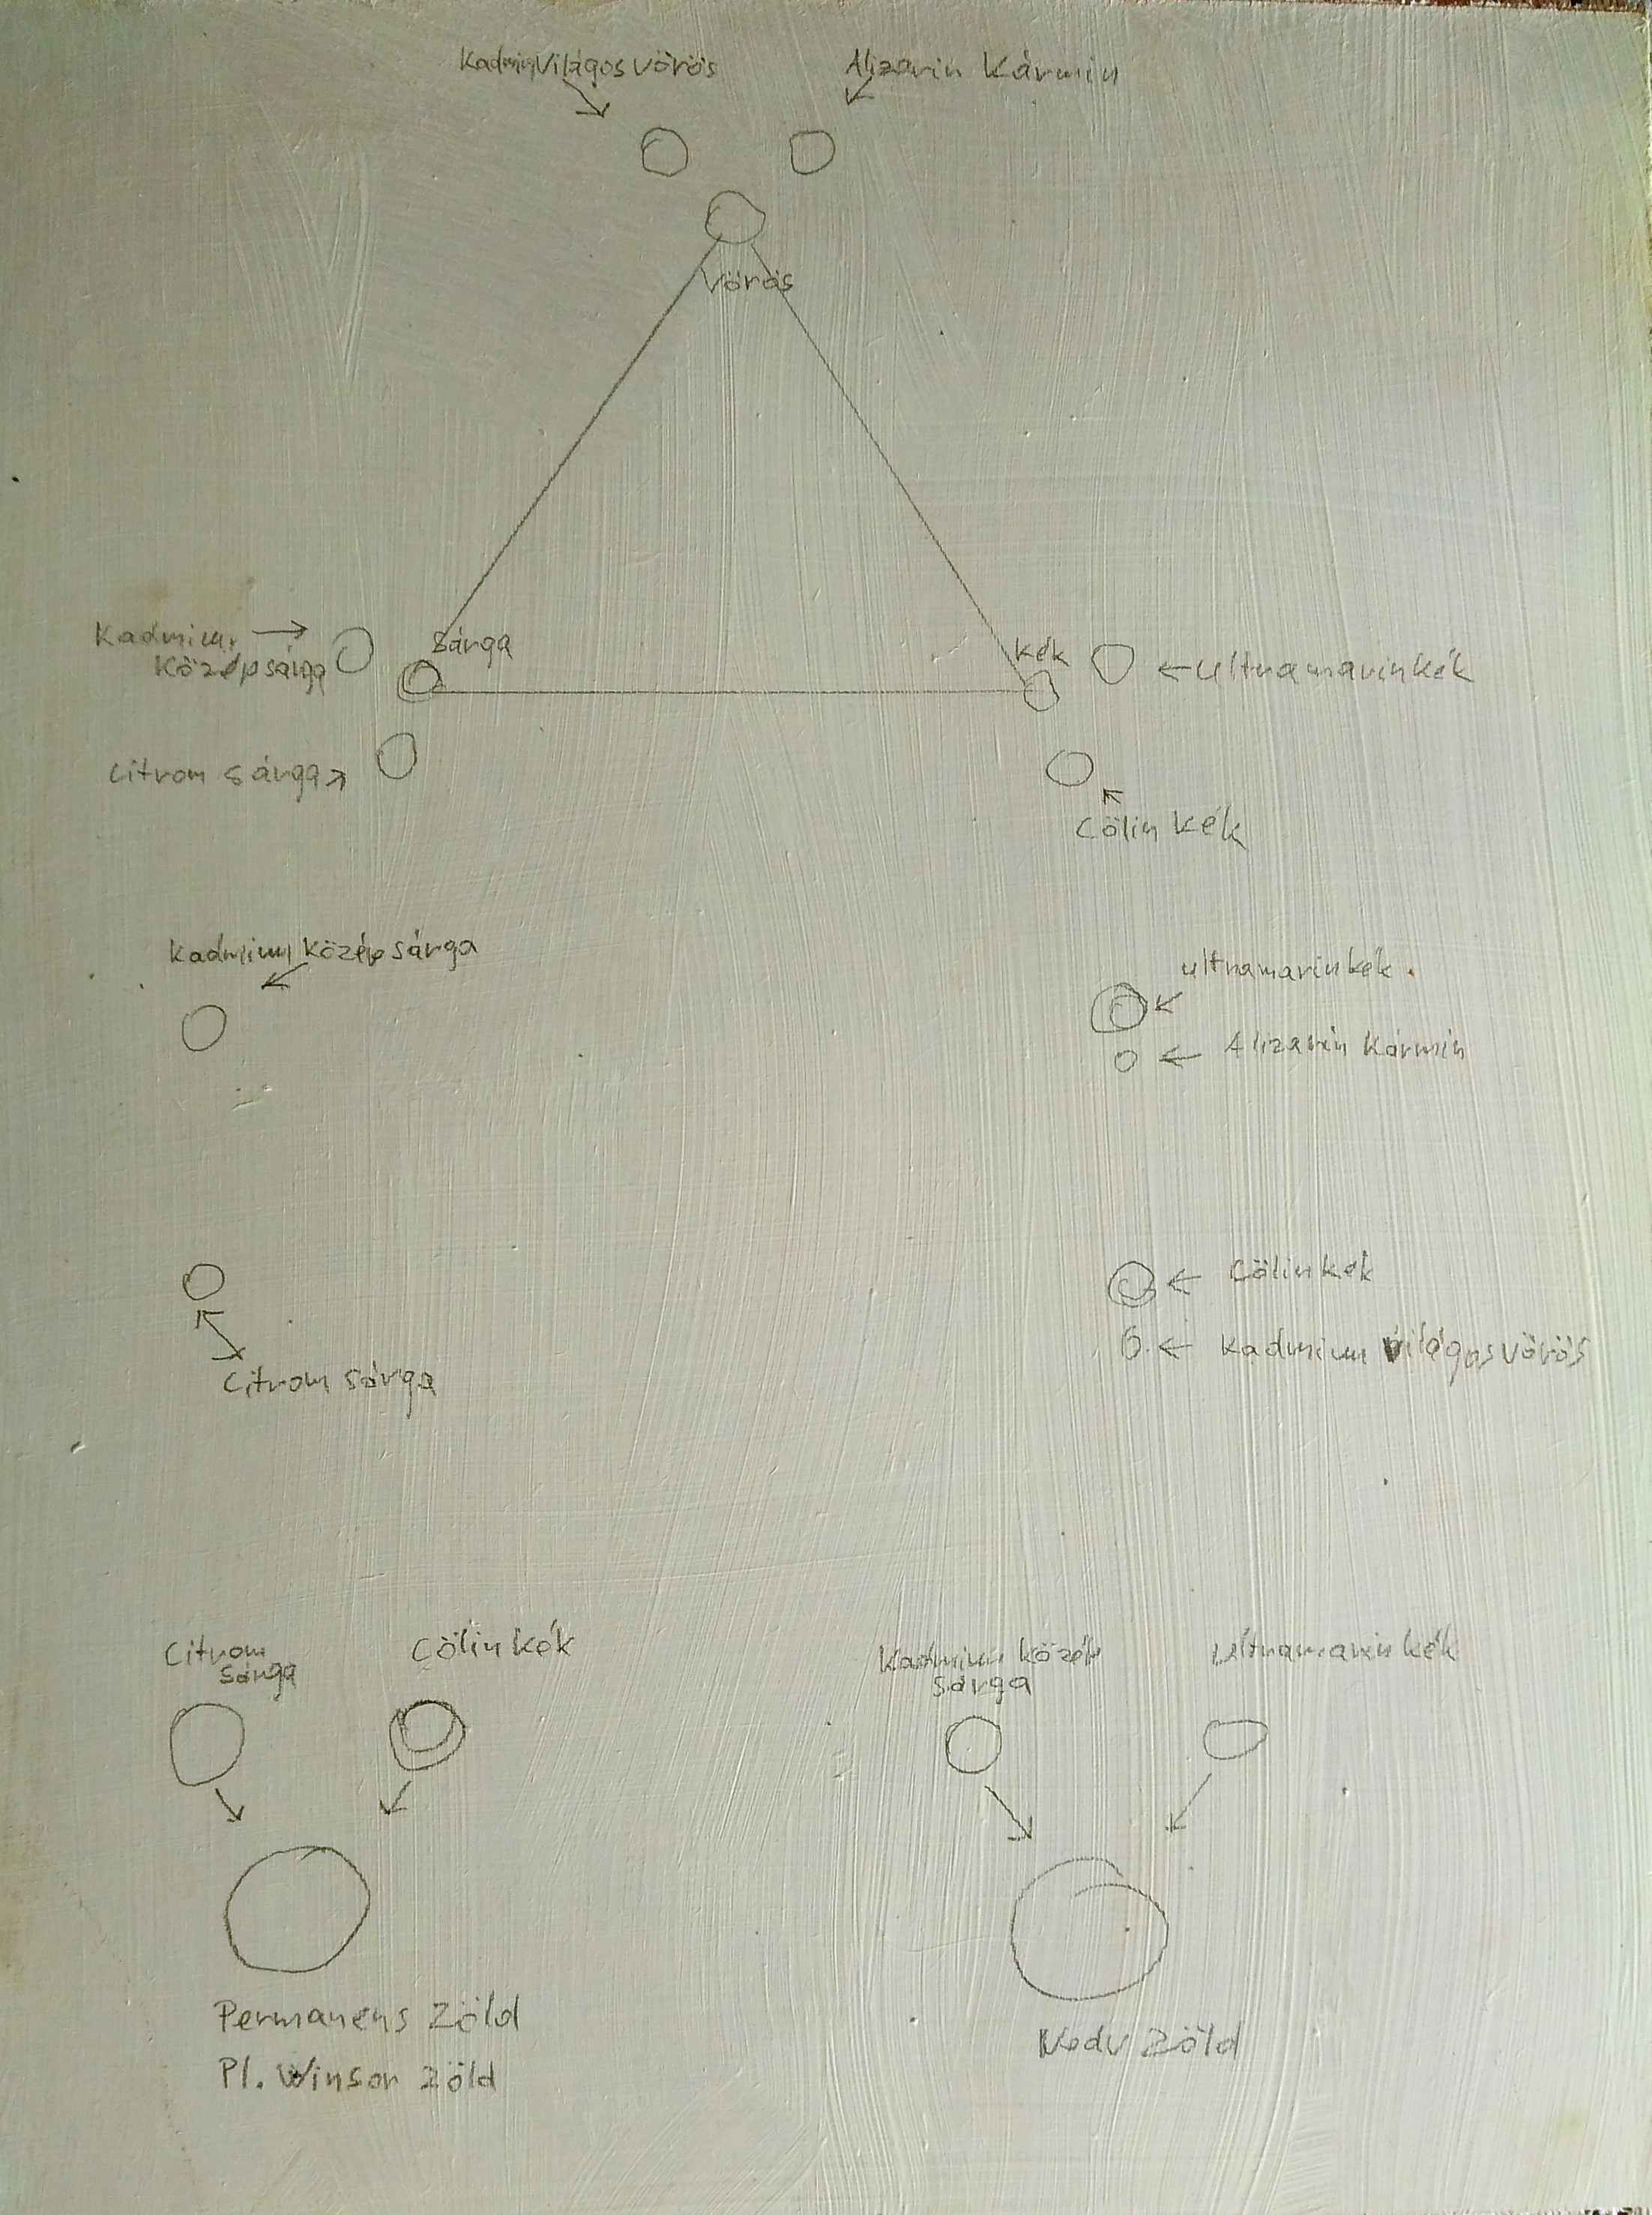 Kadmin Világos vörös
Alizarin Kármin
Vörös
Kadmium
Középsárga
Sárga
kék
ultramarinkék
Citrom sárga
Cölin kék
Kadmium Középsárga
ultramarinkék.
Alizarin Kármin
Cölinkék
Kadmium világosvörös
Citrom sárga
Citrom
Sárga
Cölinkék
Kadmium közép
sárga
Ultramarin kék
Permanens Zöld
Pl. Winsor zöld
Nedv Zöld